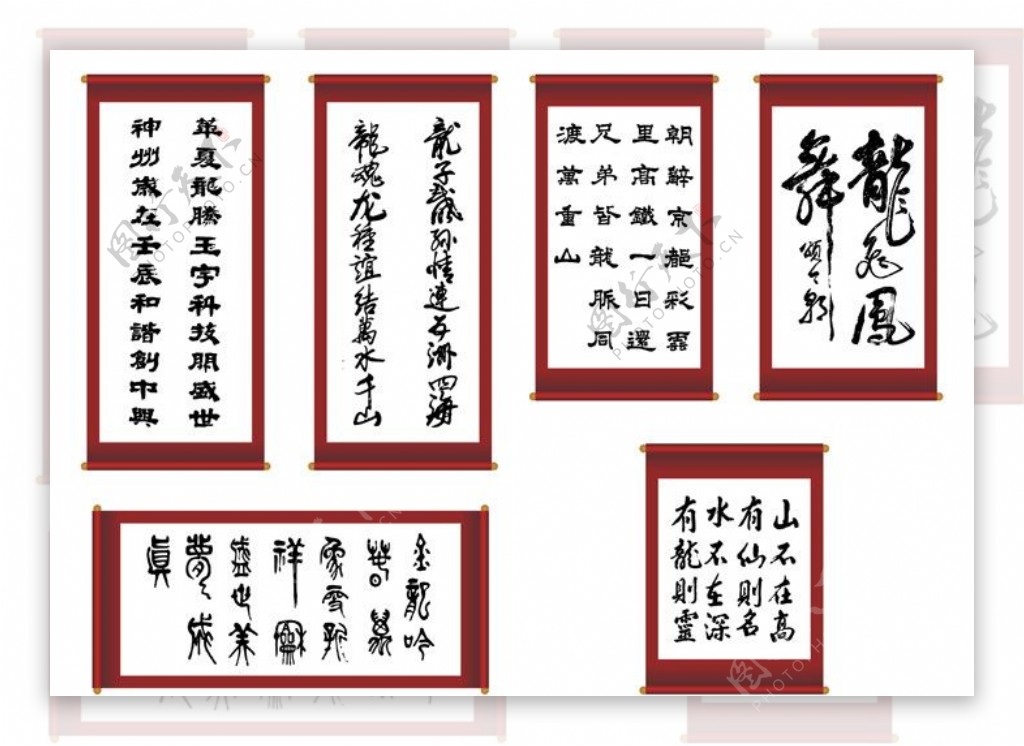 華夏龍騰玉宇科技開盛世
神州歲在壬辰和諧創中興
龍子龍孫情連五洲四海
龍魂龙種誼結萬水千山
朝辭京龍彩雲
里高鐵一日還
兄弟皆龍脈同
渡萬重山
龍飛鳳
舞
頌今朝
金龍吟
春萬
象更新
祥龢
盛世美
夢成
真
山不在高
有仙則名
水不在深
有龍則靈
图行天下
PHOTOPHOTO.CN